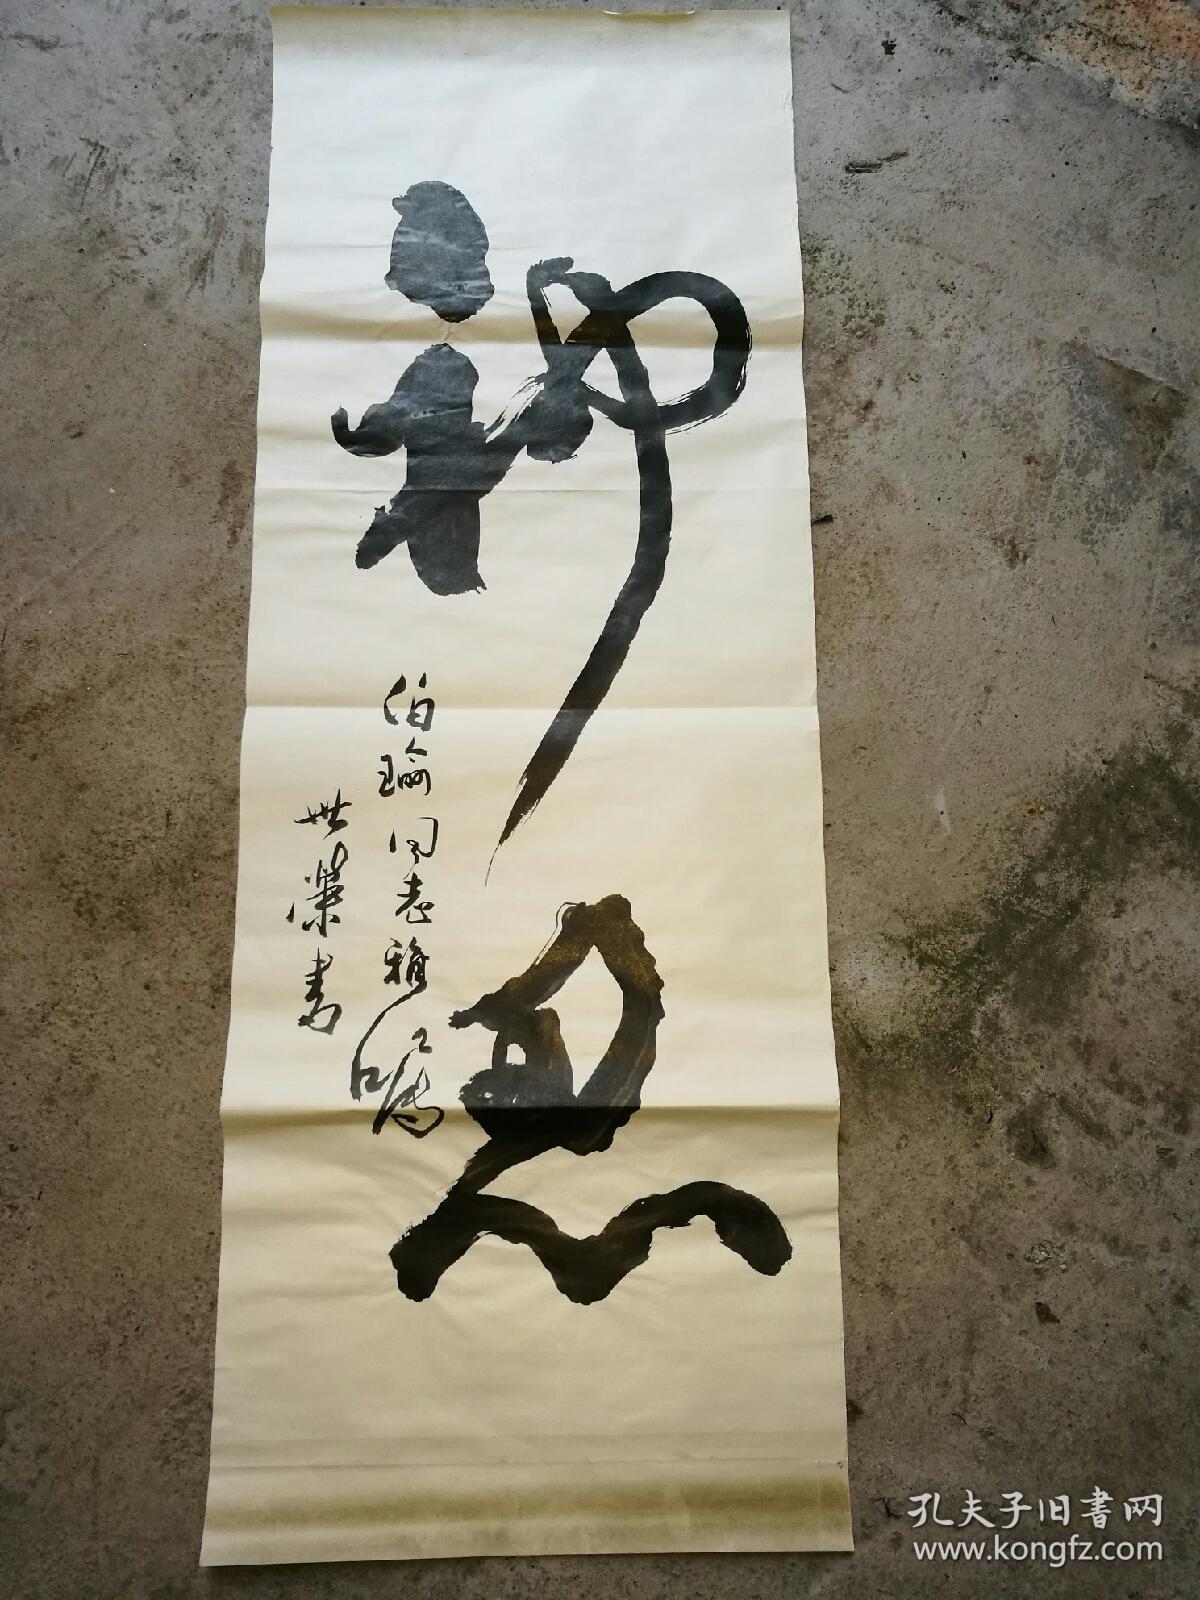 神思
伯瑜同志雅嘱
世榮書
孔夫子旧書网
www.kongfz.com